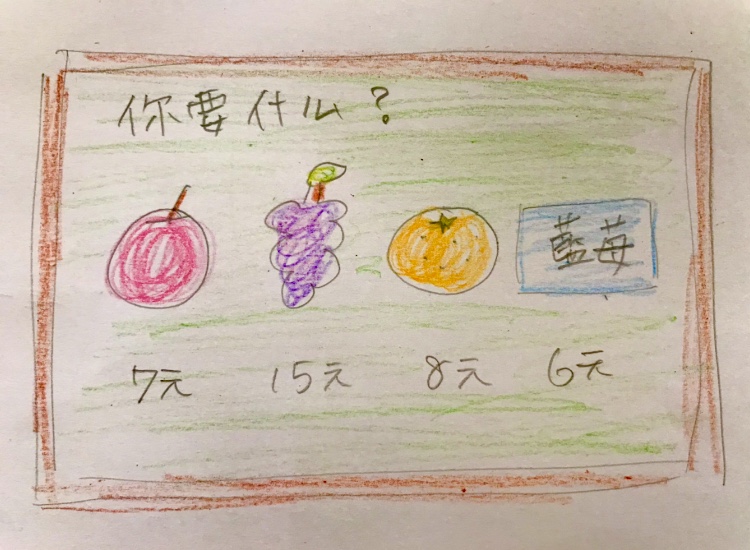 你要什么?
藍莓
7元 15元 8元 6元